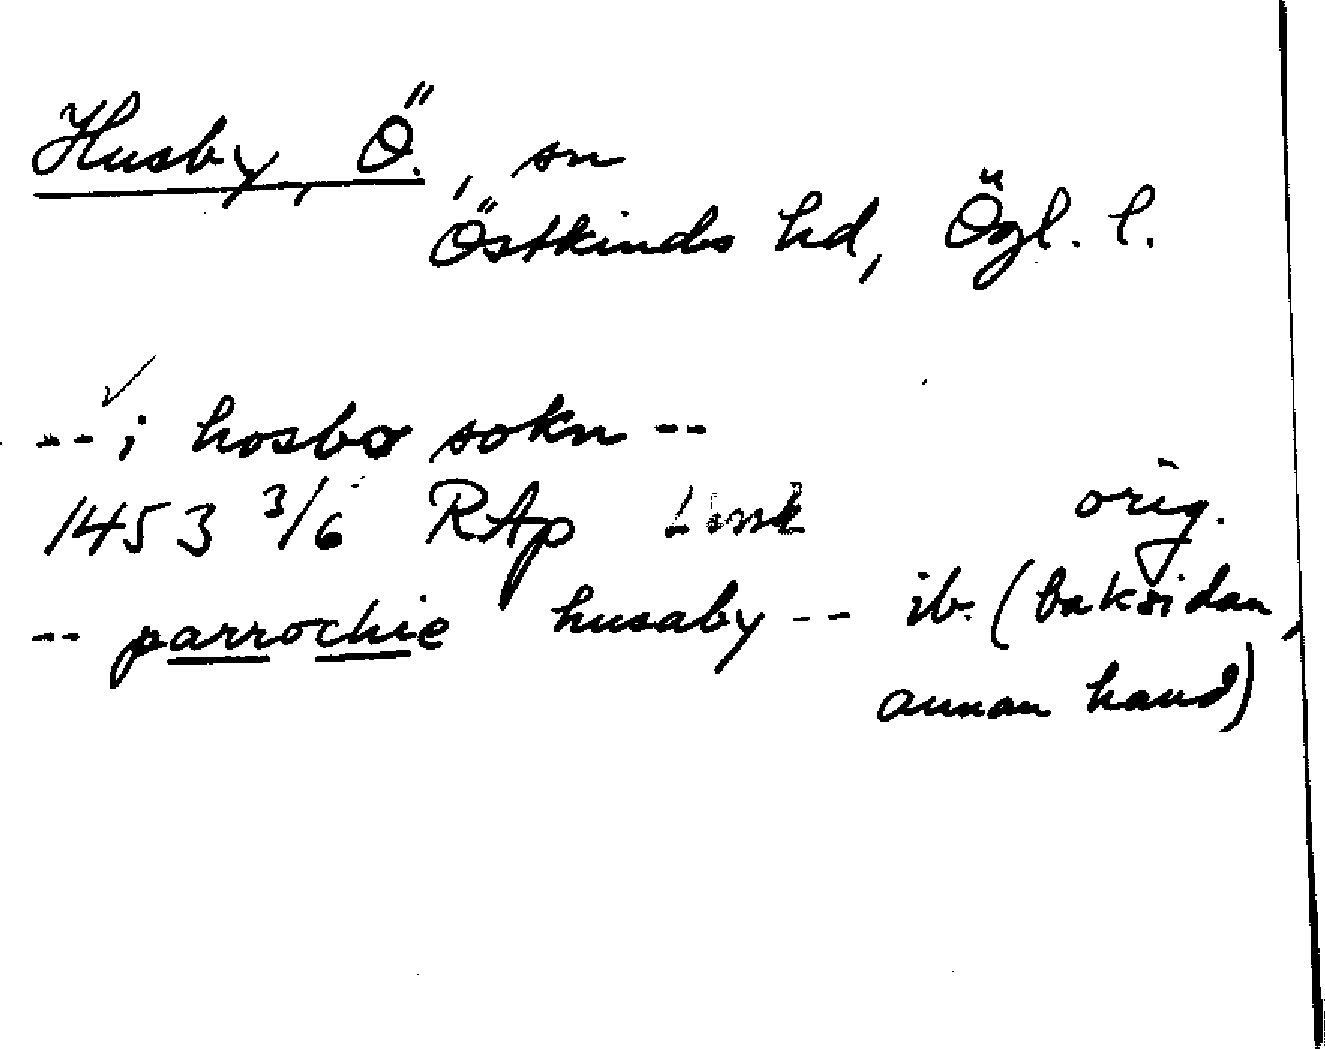 Husby, Ö., sn
Östkinds hd, Ögl. l.
-- i hosbø sokn --
1453 3/6 RAp Link orig.
-- parrochie husaby -- ib. (baksidan,
annan hand)